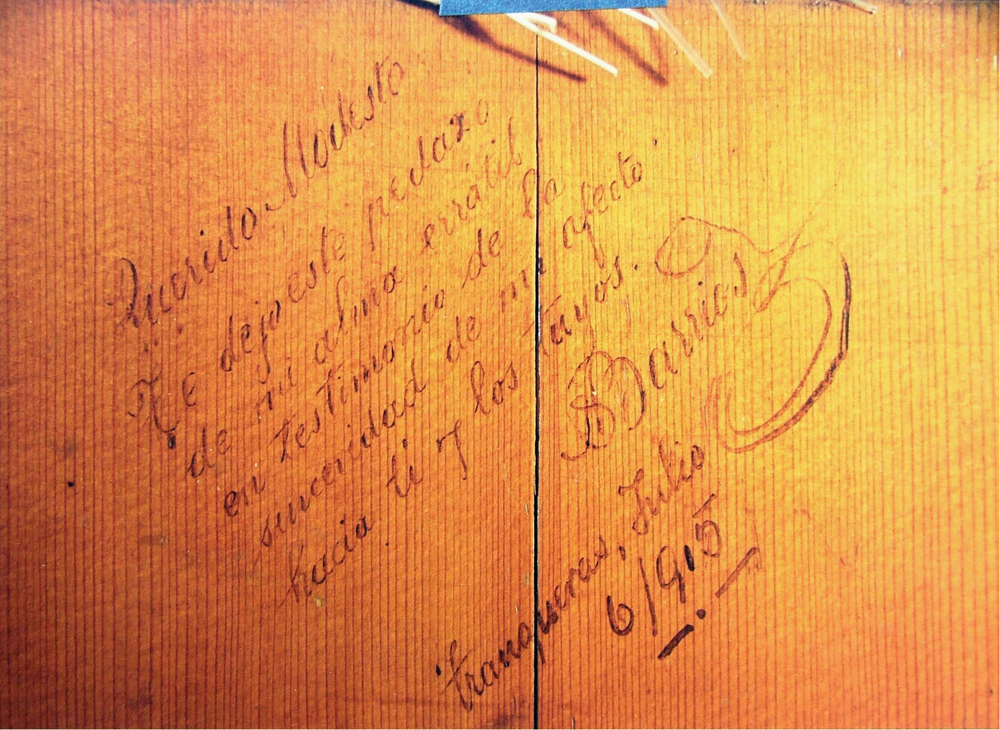 Querido Modesto
Te dejo este pedazo
de mi alma errátil
en testimonio de la
sinceridad de mi afecto.
hacia ti y los tuyos.
Barrios
Tranqueras, Julio
6/915